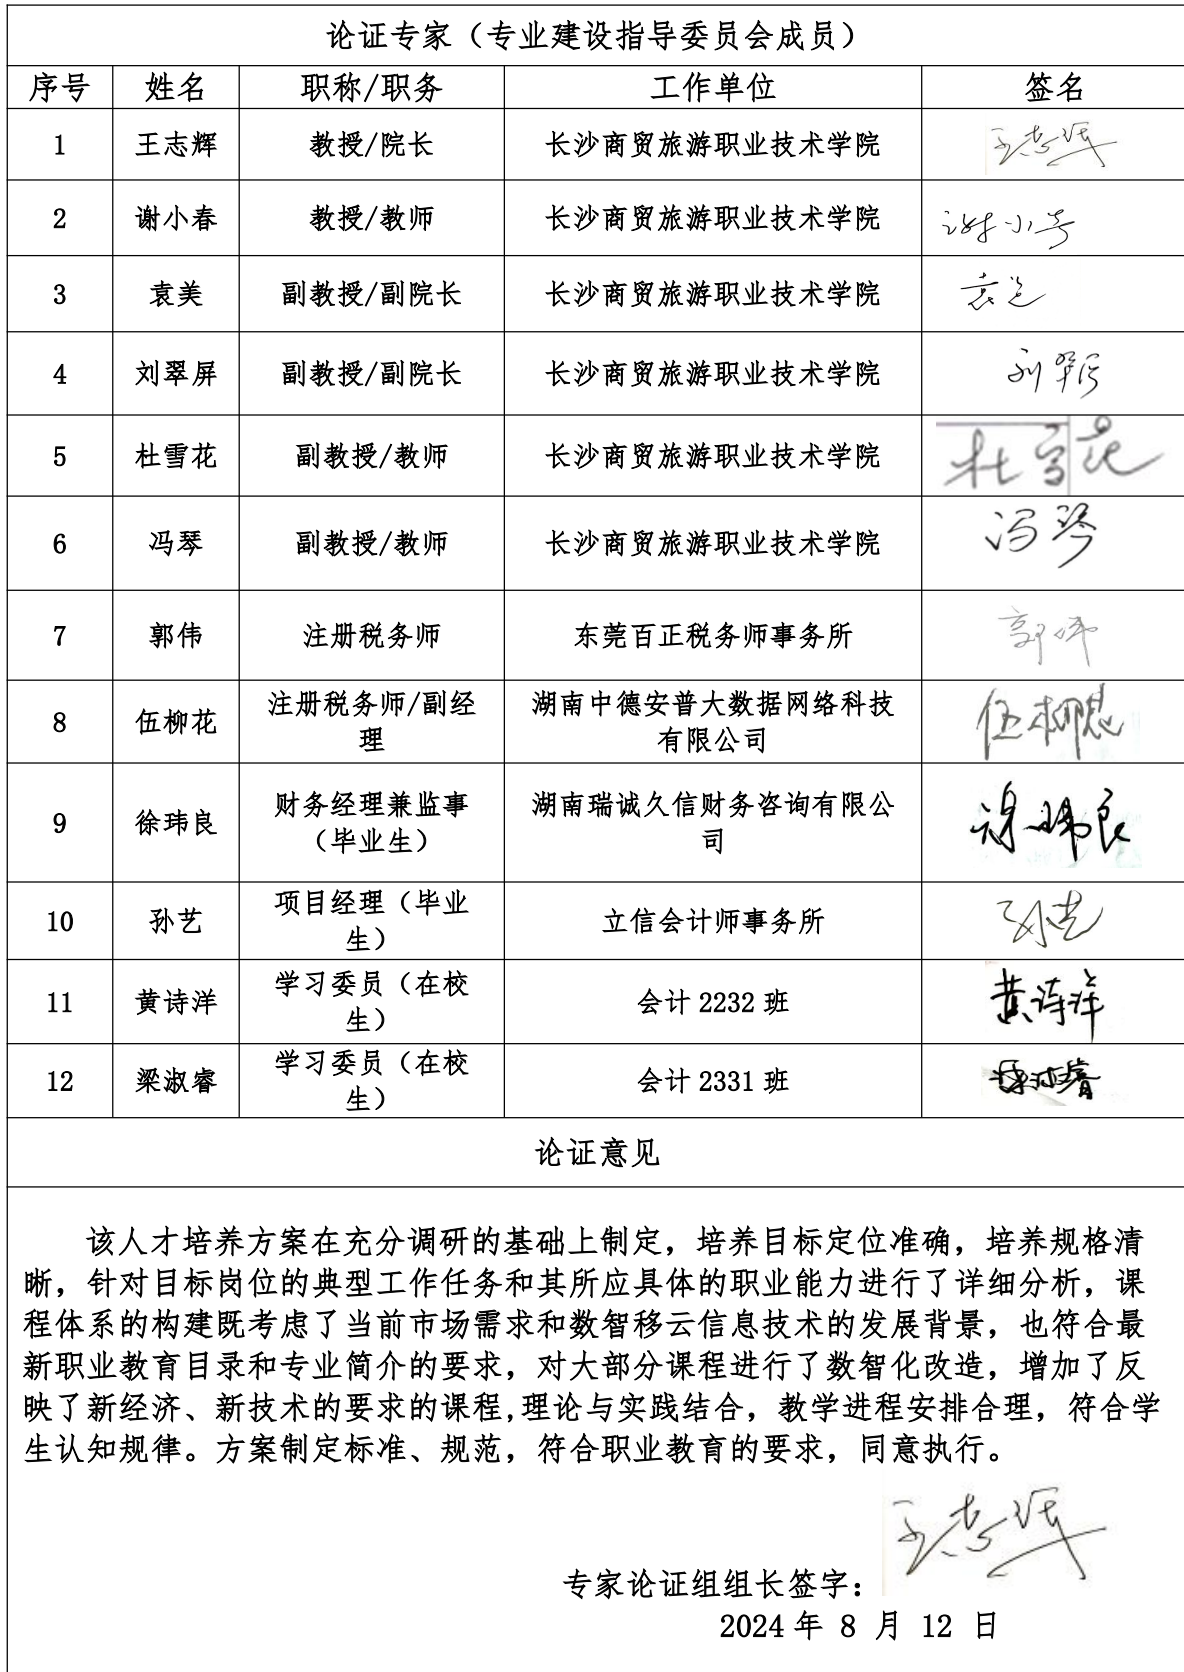 论证专家（专业建设指导委员会成员）
序号 姓名 职称/职务 工作单位 签名
1 王志辉 教授/院长 长沙商贸旅游职业技术学院 王志辉
2 谢小春 教授/教师 长沙商贸旅游职业技术学院 谢小春
3 袁美 副教授/副院长 长沙商贸旅游职业技术学院 袁美
4 刘翠屏 副教授/副院长 长沙商贸旅游职业技术学院 刘翠屏
5 杜雪花 副教授/教师 长沙商贸旅游职业技术学院 杜雪花
6 冯琴 副教授/教师 长沙商贸旅游职业技术学院 冯琴
7 郭伟 注册税务师 东莞百正税务师事务所 郭伟
8 伍柳花 注册税务师/副经
理 湖南中德安普大数据网络科技
有限公司 伍柳花
9 徐玮良 财务经理兼监事
（毕业生） 湖南瑞诚久信财务咨询有限公
司 徐玮良
10 孙艺 项目经理（毕业
生） 立信会计师事务所 孙艺
11 黄诗洋 学习委员（在校
生） 会计 2232 班 黄诗洋
12 梁淑睿 学习委员（在校
生） 会计 2331 班 梁淑睿
论证意见
该人才培养方案在充分调研的基础上制定，培养目标定位准确，培养规格清
晰，针对目标岗位的典型工作任务和其所应具体的职业能力进行了详细分析，课
程体系的构建既考虑了当前市场需求和数智移云信息技术的发展背景，也符合最
新职业教育目录和专业简介的要求，对大部分课程进行了数智化改造，增加了反
映了新经济、新技术的要求的课程,理论与实践结合，教学进程安排合理，符合学
生认知规律。方案制定标准、规范，符合职业教育的要求，同意执行。
专家论证组组长签字：王志辉
2024 年 8 月 12 日